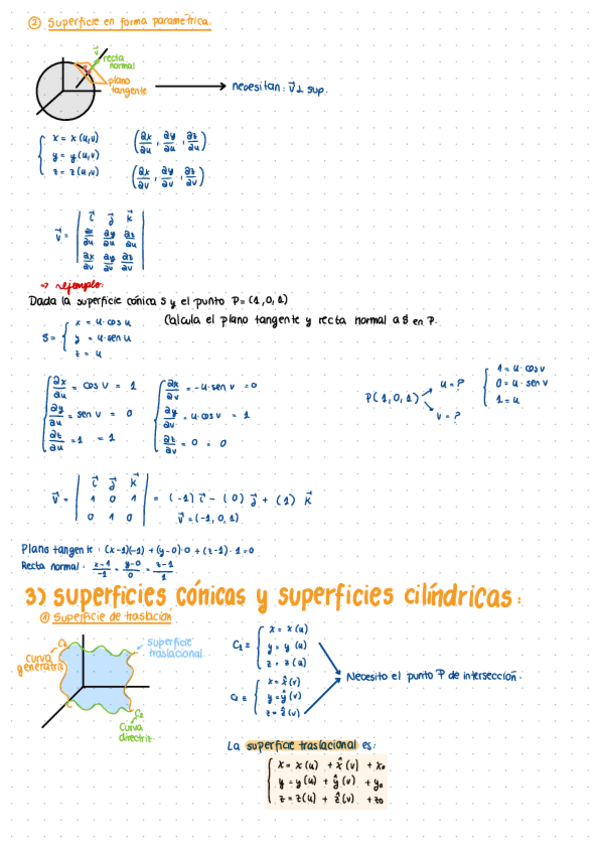 ② Superficie en forma paramétrica.
v⃗
recta
normal
plano
tangente
necesitan: v⃗ ⊥ sup.
x = x(u,v)
y = y(u,v)
z = z(u,v)
(∂x/∂u, ∂y/∂u, ∂z/∂u)
(∂x/∂v, ∂y/∂v, ∂z/∂v)
v⃗ = | i⃗ j⃗ k⃗ |
| ∂x/∂u ∂y/∂u ∂z/∂u |
| ∂x/∂v ∂y/∂v ∂z/∂v |
→ ejemplo:
Dada la superficie cónica S y el punto P=(1,0,1)
Calcula el plano tangente y recta normal a S en P.
S = { x = u·cos u
y = u·sen u
z = u
∂x/∂u = cos v = 1
∂y/∂u = sen v = 0
∂z/∂u = 1 = 1
∂x/∂v = -u·sen v = 0
∂y/∂v = u·cos v = 1
∂z/∂v = 0 = 0
P(1,0,1)
u = ?
v = ?
1 = u·cos v
0 = u·sen v
1 = u
v⃗ = | i⃗ j⃗ k⃗ |
| 1 0 1 |
| 0 1 0 | = (-1) i⃗ - (0) j⃗ + (1) k⃗
v⃗ = (-1, 0, 1)
Plano tangente: (x-1)(-1) + (y-0)·0 + (z-1)·1 = 0
Recta normal: x-1/-1 = y-0/0 = z-1/1
3) superficies cónicas y superficies cilíndricas:
① Superficie de traslación
C₁
curva
generatriz
superficie
traslacional
C₂
curva
directriz
C₁ ≡ { x = x(u)
y = y(u)
z = z(u)
C₂ ≡ { x = x̂(v)
y = ŷ(v)
z = ẑ(v)
Necesito el punto P de intersección.
La superficie traslacional es:
x = x(u) + x̂(v) + x₀
y = y(u) + ŷ(v) + y₀
z = z(u) + ẑ(v) + z₀